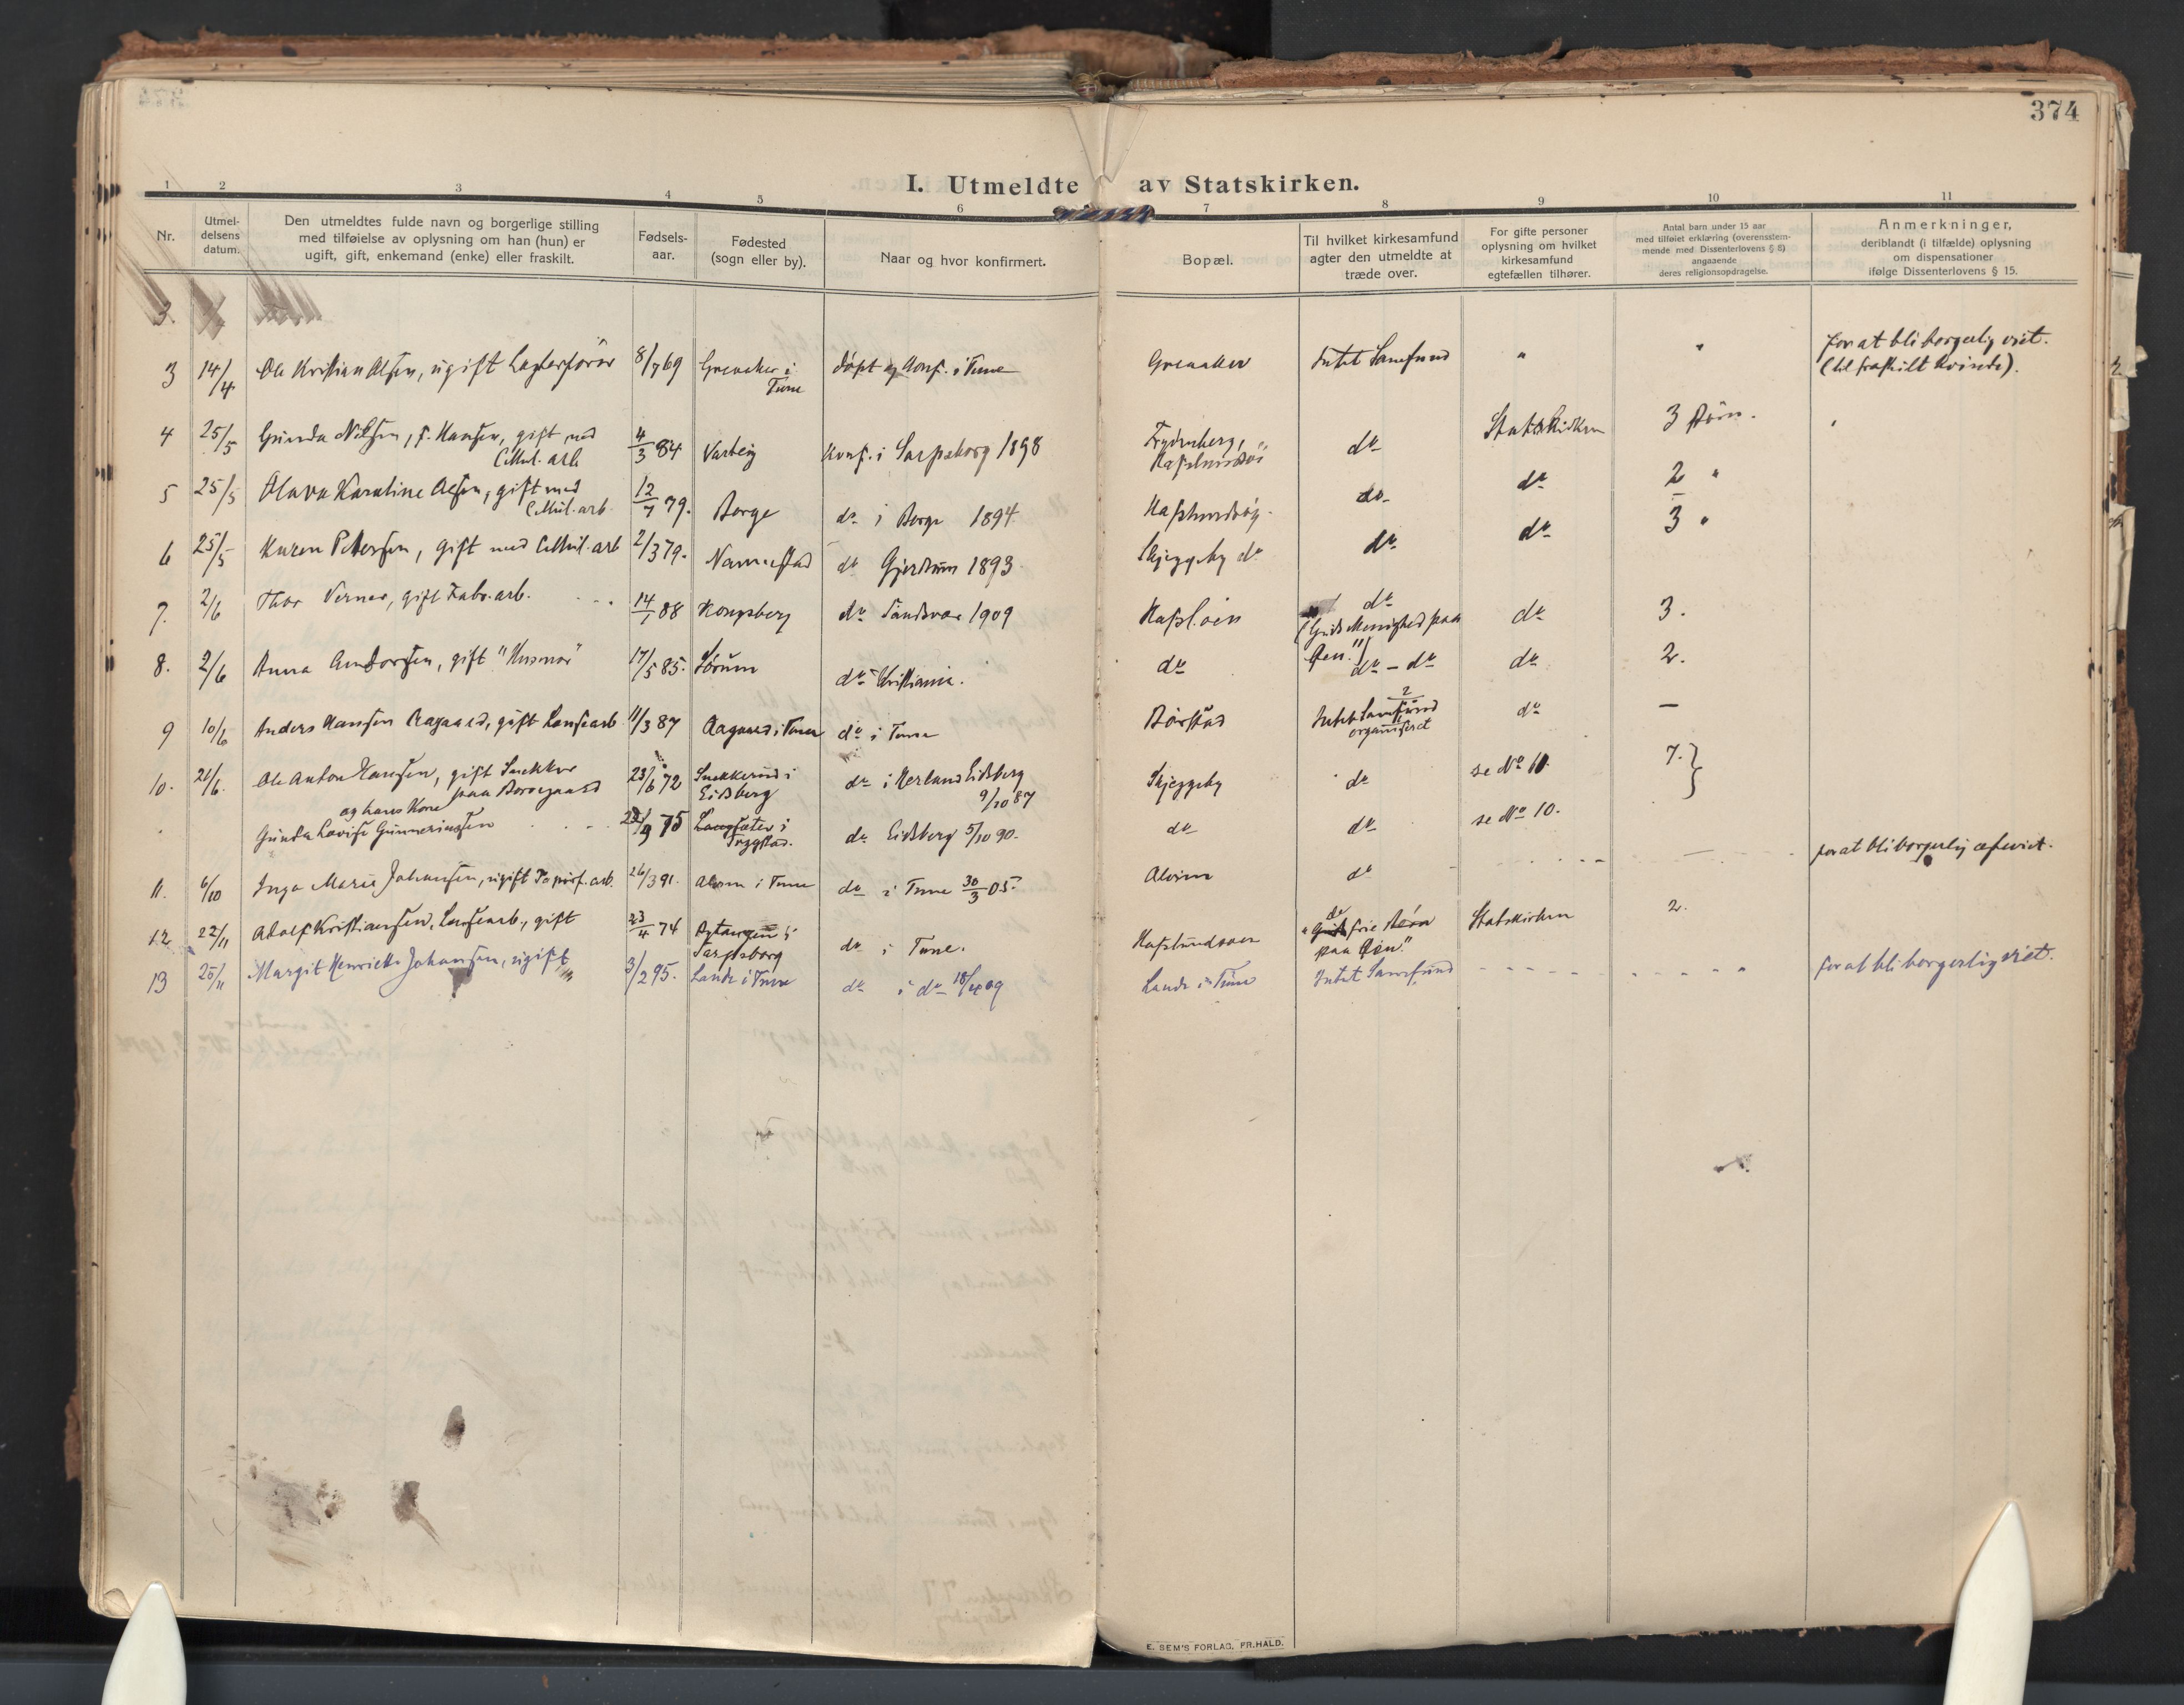 374
I. Utmeldte av Statskirken.
1 2 3 4 5 6 7 8 9 10 11
Nr.
Utmel-
delsens
datum.
Den utmeldtes fulde navn og borgerlige stilling
med tilføielse av oplysning om han (hun) er
ugift, gift, enkemand (enke) eller fraskilt.
Fødsels-
aar.
Fødested
(sogn eller by).
Naar og hvor konfirmert.
Bopæl.
Til hvilket kirkesamfund
agter den utmeldte at
træde over.
For gifte personer
oplysning om hvilket
kirkesamfund
egtefællen tilhører.
Antal barn under 15 aar
med tilføiet erklæring (overensstem-
mende med Dissenterlovens § 8)
angaaende
deres religionsopdragelse.
Anmerkninger,
deriblandt (i tilfælde) oplysning
om dispensationer
ifølge Dissenterlovens § 15.
3.
3 14/4 Ole Kristian Olsen, ugift 8/7 69 Greaaker i Tune døpt og konf. i Tune Greaaker Intet Samfund " " for at bli borgerlig viet.
(til fraskilt kvinde).
4 25/5 Gunda Nilsen, f. Hansen, gift med
Cellul. arb. 4/3 84 Varteig konf. i Sarpsborg 1898 Hafslundsøi do Statskirken 3 Børn.
5 25/5 Olava Karoline Olsen, gift med
Cellul. arb. 12/7 79. Borge do i Borge 1894 Hafslundsøy. do do 2 "
6 25/5 Karen Petersen, gift med Cellul. arb 2/3 79. Nannestad do Gjerdrum 1893 Skjeggeby do do do 3 "
7. 2/6 Thor Verner, gift Fabr. arb. 14/1 88 Kongsberg do Sandsvær 1909 Hafsl.øien do
(Guds Menighed paa
Øen") do 3.
8. 2/6 Anna Amborsen, gift "Husmor" 17/5 85. Sørum do Kristiania. do do - do do 2.
9 10/6 Anders Hansen Aagaard, gift Lensearb. 11/3 87 Aagaard i Tune do i Tune Borstad Intet Samfund
organiseret do —
10. 21/6. Ole Anton Hansen, gift Snekker
paa Borregaard 23/6 72 Snekkerud i
Eidsberg do i Herland Eidsberg
9/10 87 Skjeggeby do se No 10. 7. }
og hans Kone
Gunda Lovise Gunneriusen 22/9 75 Langsæter i
Trygstad. do Eidsberg 5/10 90. do do se No 10.
11. 6/10 Inga Marie Johansen, ugift Papirf. arb. 26/3 91. Alvim i Tune do i Tune 30/3 05. Alvim do — for at bli borgerlig viet.
12 22/11 Adolf Kristiansen, Lensearb., gift 23/4 74 Sarpsborg do i Tune. Hafslundsøen "de frie Venner
paa Øen." Statskirken 2.
13 25/11 Margit Henriette Johansen, ugift 3/2 95. Lande i Tune do i do 18/4 09 Lande i Tune Intet Samfund for at bli borgerlig viet.
E. SEM'S FORLAG, FR.HALD.